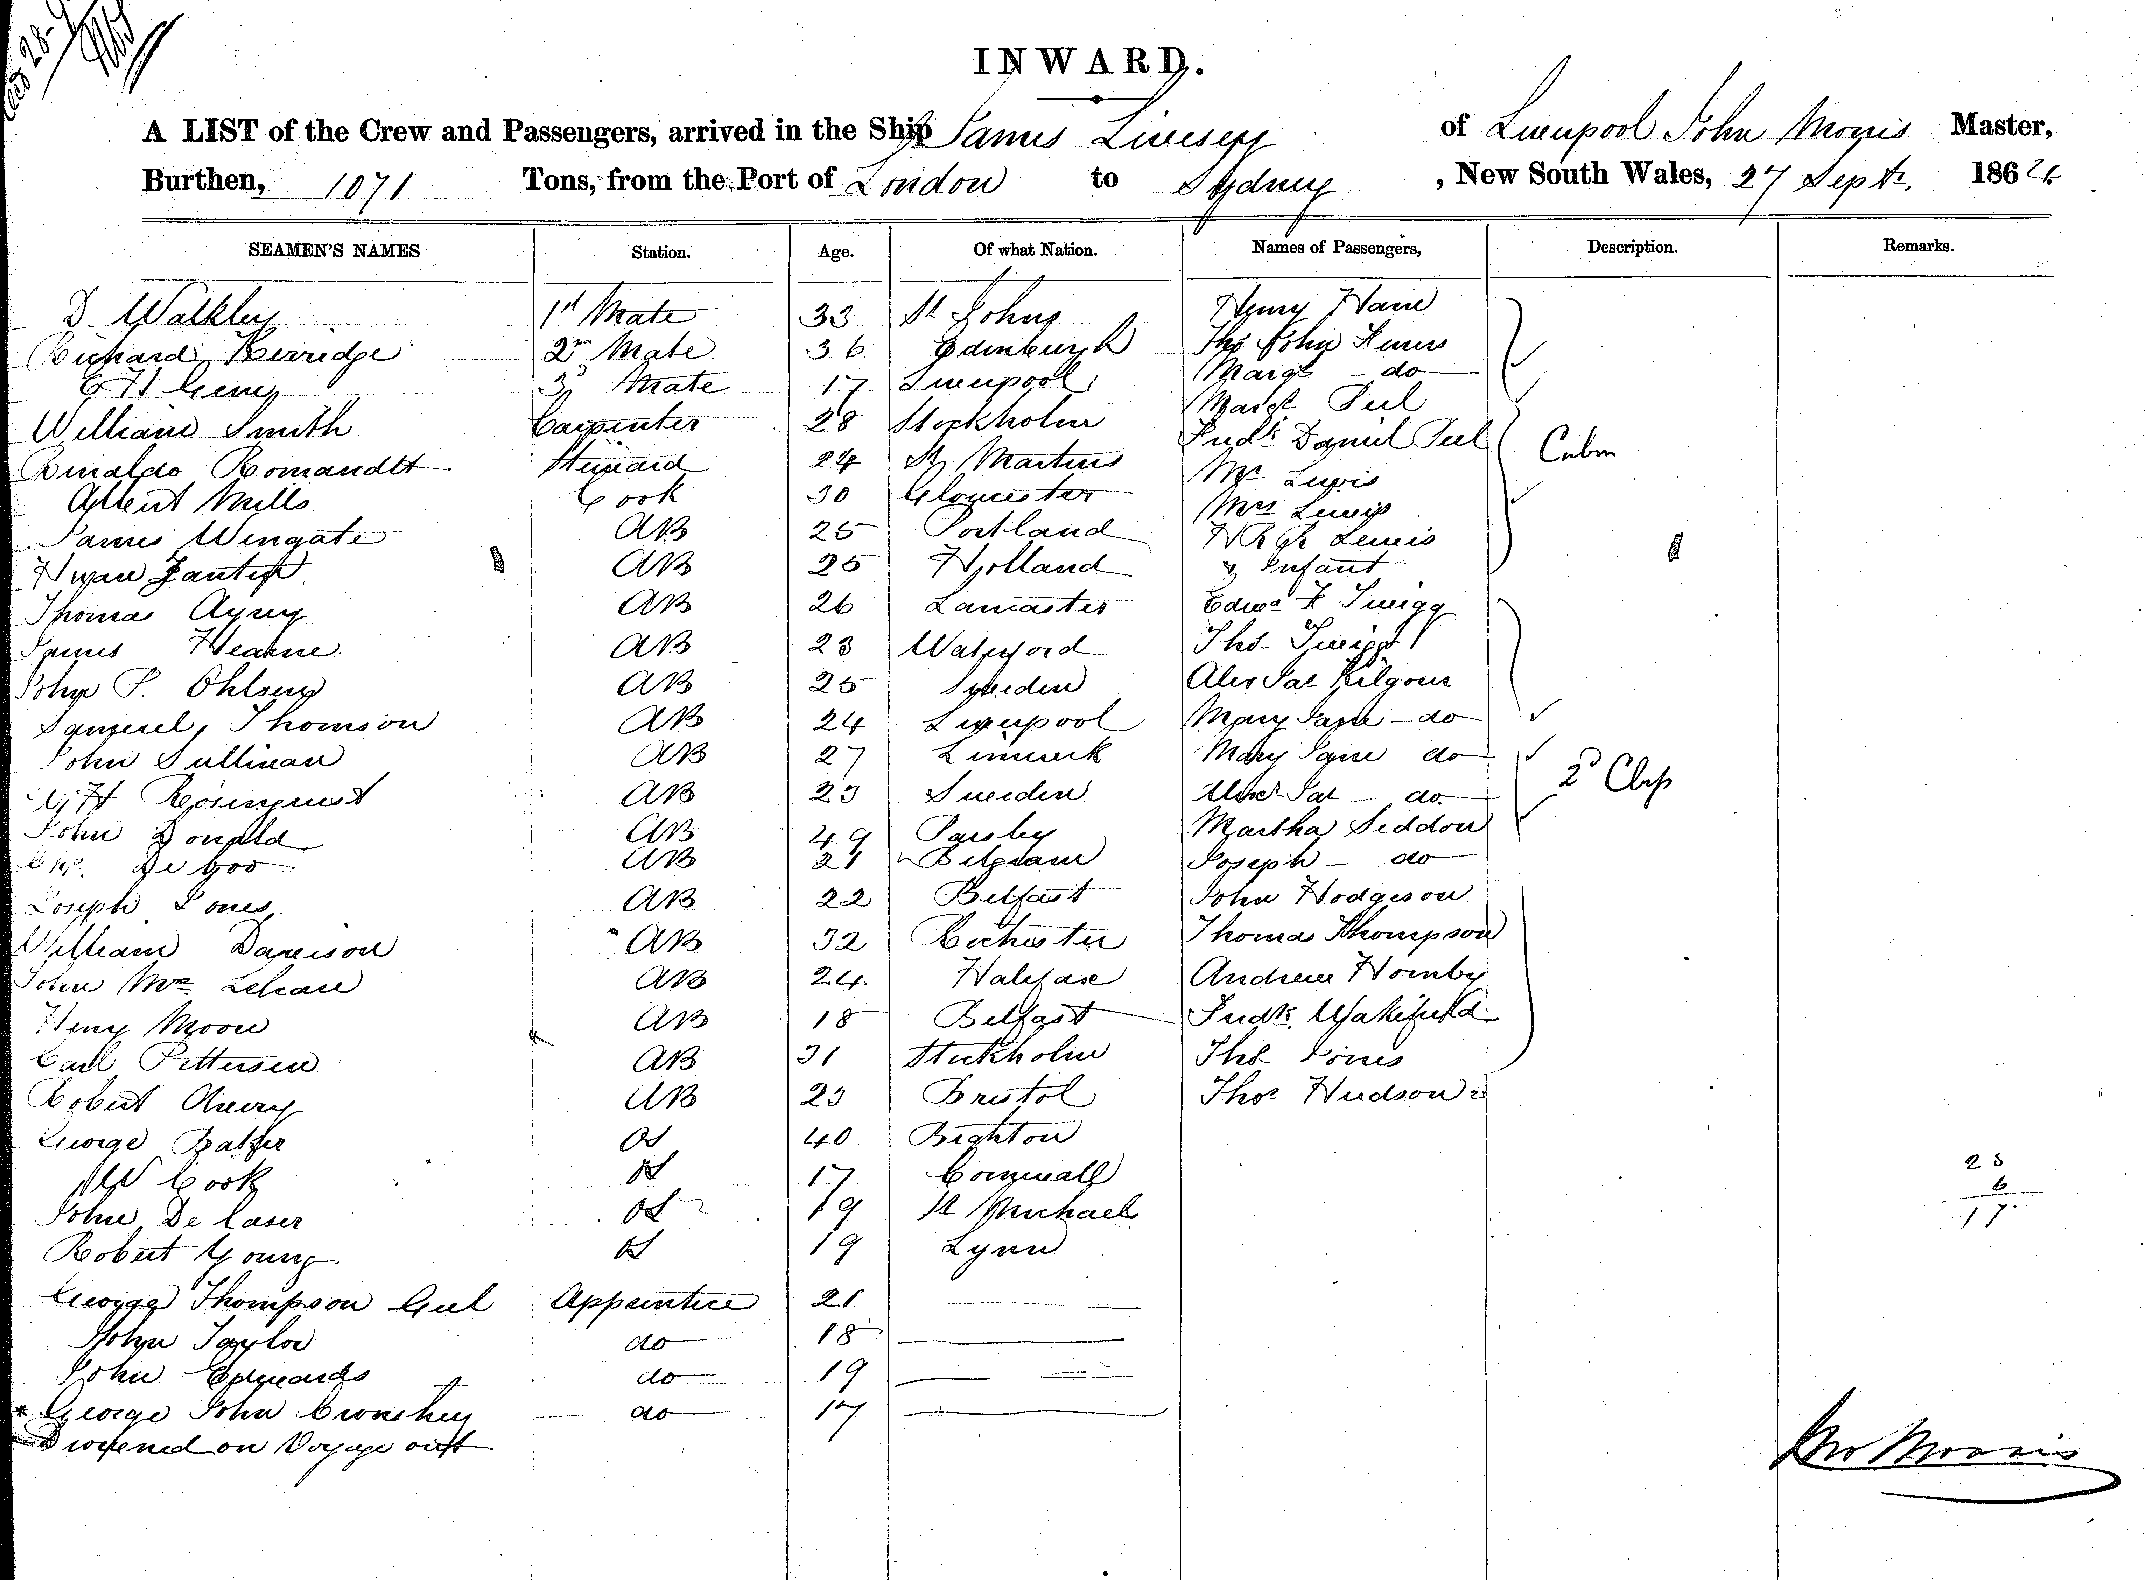 INWARD.
A LIST of the Crew and Passengers, arrived in the Ship James Livesey of Liverpool John Morris Master,
Burthen, 1071 Tons, from the Port of London to Sydney , New South Wales, 27 Sept. 186
SEAMEN'S NAMES Station. Age. Of what Nation. Names of Passengers, Description. Remarks.
D. Walkley 1st Mate 33 St Johns Henry
Richard Kerridge 2nd Mate 36 Edinburgh Thos John
E H 3d Mate 17 Liverpool Margt do
William Smith Carpenter 28 Stockholm Margt Peel
Rinaldo Romandtt Steward 24 St Martins Fredk Daniel Peel Cabin
Albert Mills Cook 30 Gloucester Mr Lewis
James Wingate AB 25 Portland Mrs Lewis
AB 25 Holland Lewis
& Infant
Thomas Ayrey AB 26 Lancaster Edwd F Twigg
James Hearne AB 23 Waterford Thos Twigg
John P. Ohlsen AB 25 Sweden Alex Jas Kilgour
Samuel Thomson AB 24 Liverpool Mary Jane do
John Sullivan AB 27 Limerick Mary Jane do
Rosinquist AB 23 Sweden Alexr Jas do 2d Class
John Donald AB 49 Paisley Martha Seddon
De Goo AB 21 Belgium Joseph do
Joseph Jones AB 22 Belfast John Hodgeson
William Davieson AB 32 Rochester Thomas Thompson
John Mc Lehane AB 24 Halifax Andrew Hornby
Henry Moore AB 18 Belfast Fredk Wakefield
Carl Pettersen AB 31 Stockholm Thos Jones
Robert Avery AB 23 Bristol Thos Hudson
George Balfer OS 40 Brighton
W Cook OS 17 Cornwall
John De Caser OS 19 St Michael
Robert Young OS 19 Lynn
23
6
17
George Thompson Geel Apprentice 21
John Taylor do 18
John Edwards do 19
* George John Cronshey do 17
Drowned on Voyage out
Jno Morris